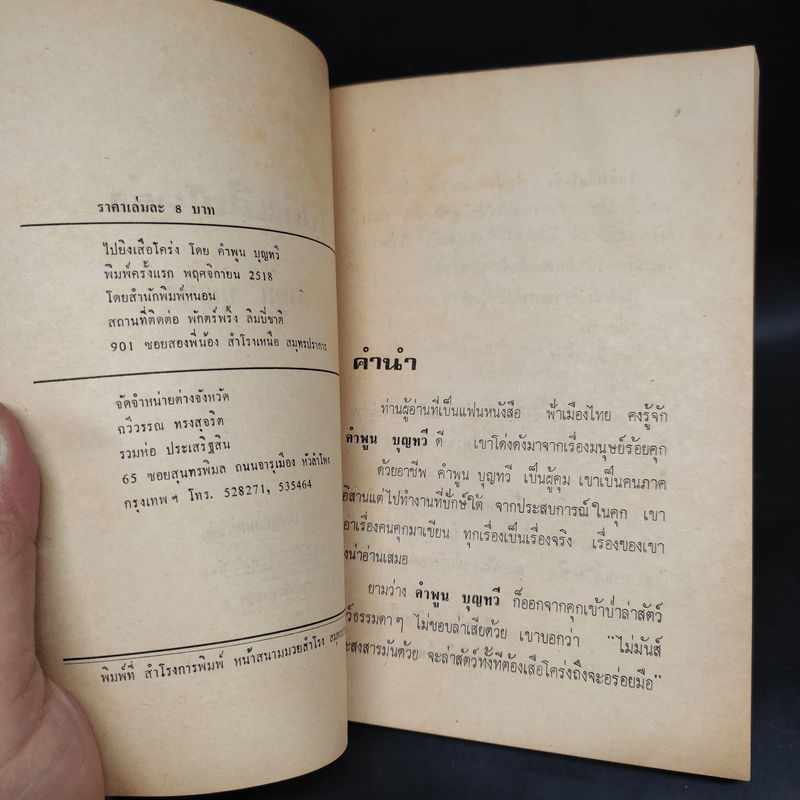 ราคาเล่มละ 8 บาท
ไปยิงเสือโคร่ง โดย คำพูน บุญทวี
พิมพ์ครั้งแรก พฤศจิกายน 2518
โดยสำนักพิมพ์หนอน
สถานที่ติดต่อ พักตร์พริ้ง ลิมปิชาติ
901 ซอยสองพี่น้อง สำโรงเหนือ สมุทรปราการ
จัดจำหน่ายต่างจังหวัด
ถวิวรรณ ทรงสุจริต
รวมห่อ ประเสริฐสิน
65 ซอยสุนทรพิมล ถนนจารุเมือง หัวลำโพง
กรุงเทพฯ โทร. 528271, 535464
พิมพ์ที่ สำโรงการพิมพ์ หน้าสนามมวยสำโรง
คำนำ
ท่านผู้อ่านที่เป็นแฟนหนังสือ ฟ้าเมืองไทย คงรู้จัก
คำพูน บุญทวี ดี เขาโด่งดังมาจากเรื่องมนุษย์ร้อยคุก
ด้วยอาชีพ คำพูน บุญทวี เป็นผู้คุม เขาเป็นคนภาค
อิสานแต่ไปทำงานที่ปักษ์ใต้ จากประสบการณ์ในคุก เขา
เอาเรื่องคนคุกมาเขียน ทุกเรื่องเป็นเรื่องจริง เรื่องของเขา
น่าอ่านเสมอ
ยามว่าง คำพูน บุญทวี ก็ออกจากคุกเข้าป่าล่าสัตว์
ธรรมดาๆ ไม่ชอบล่าเสียด้วย เขาบอกว่า "ไม่มันส์
สงสารมันด้วย จะล่าสัตว์ทั้งทีต้องเสือโคร่งถึงจะอร่อยมือ"